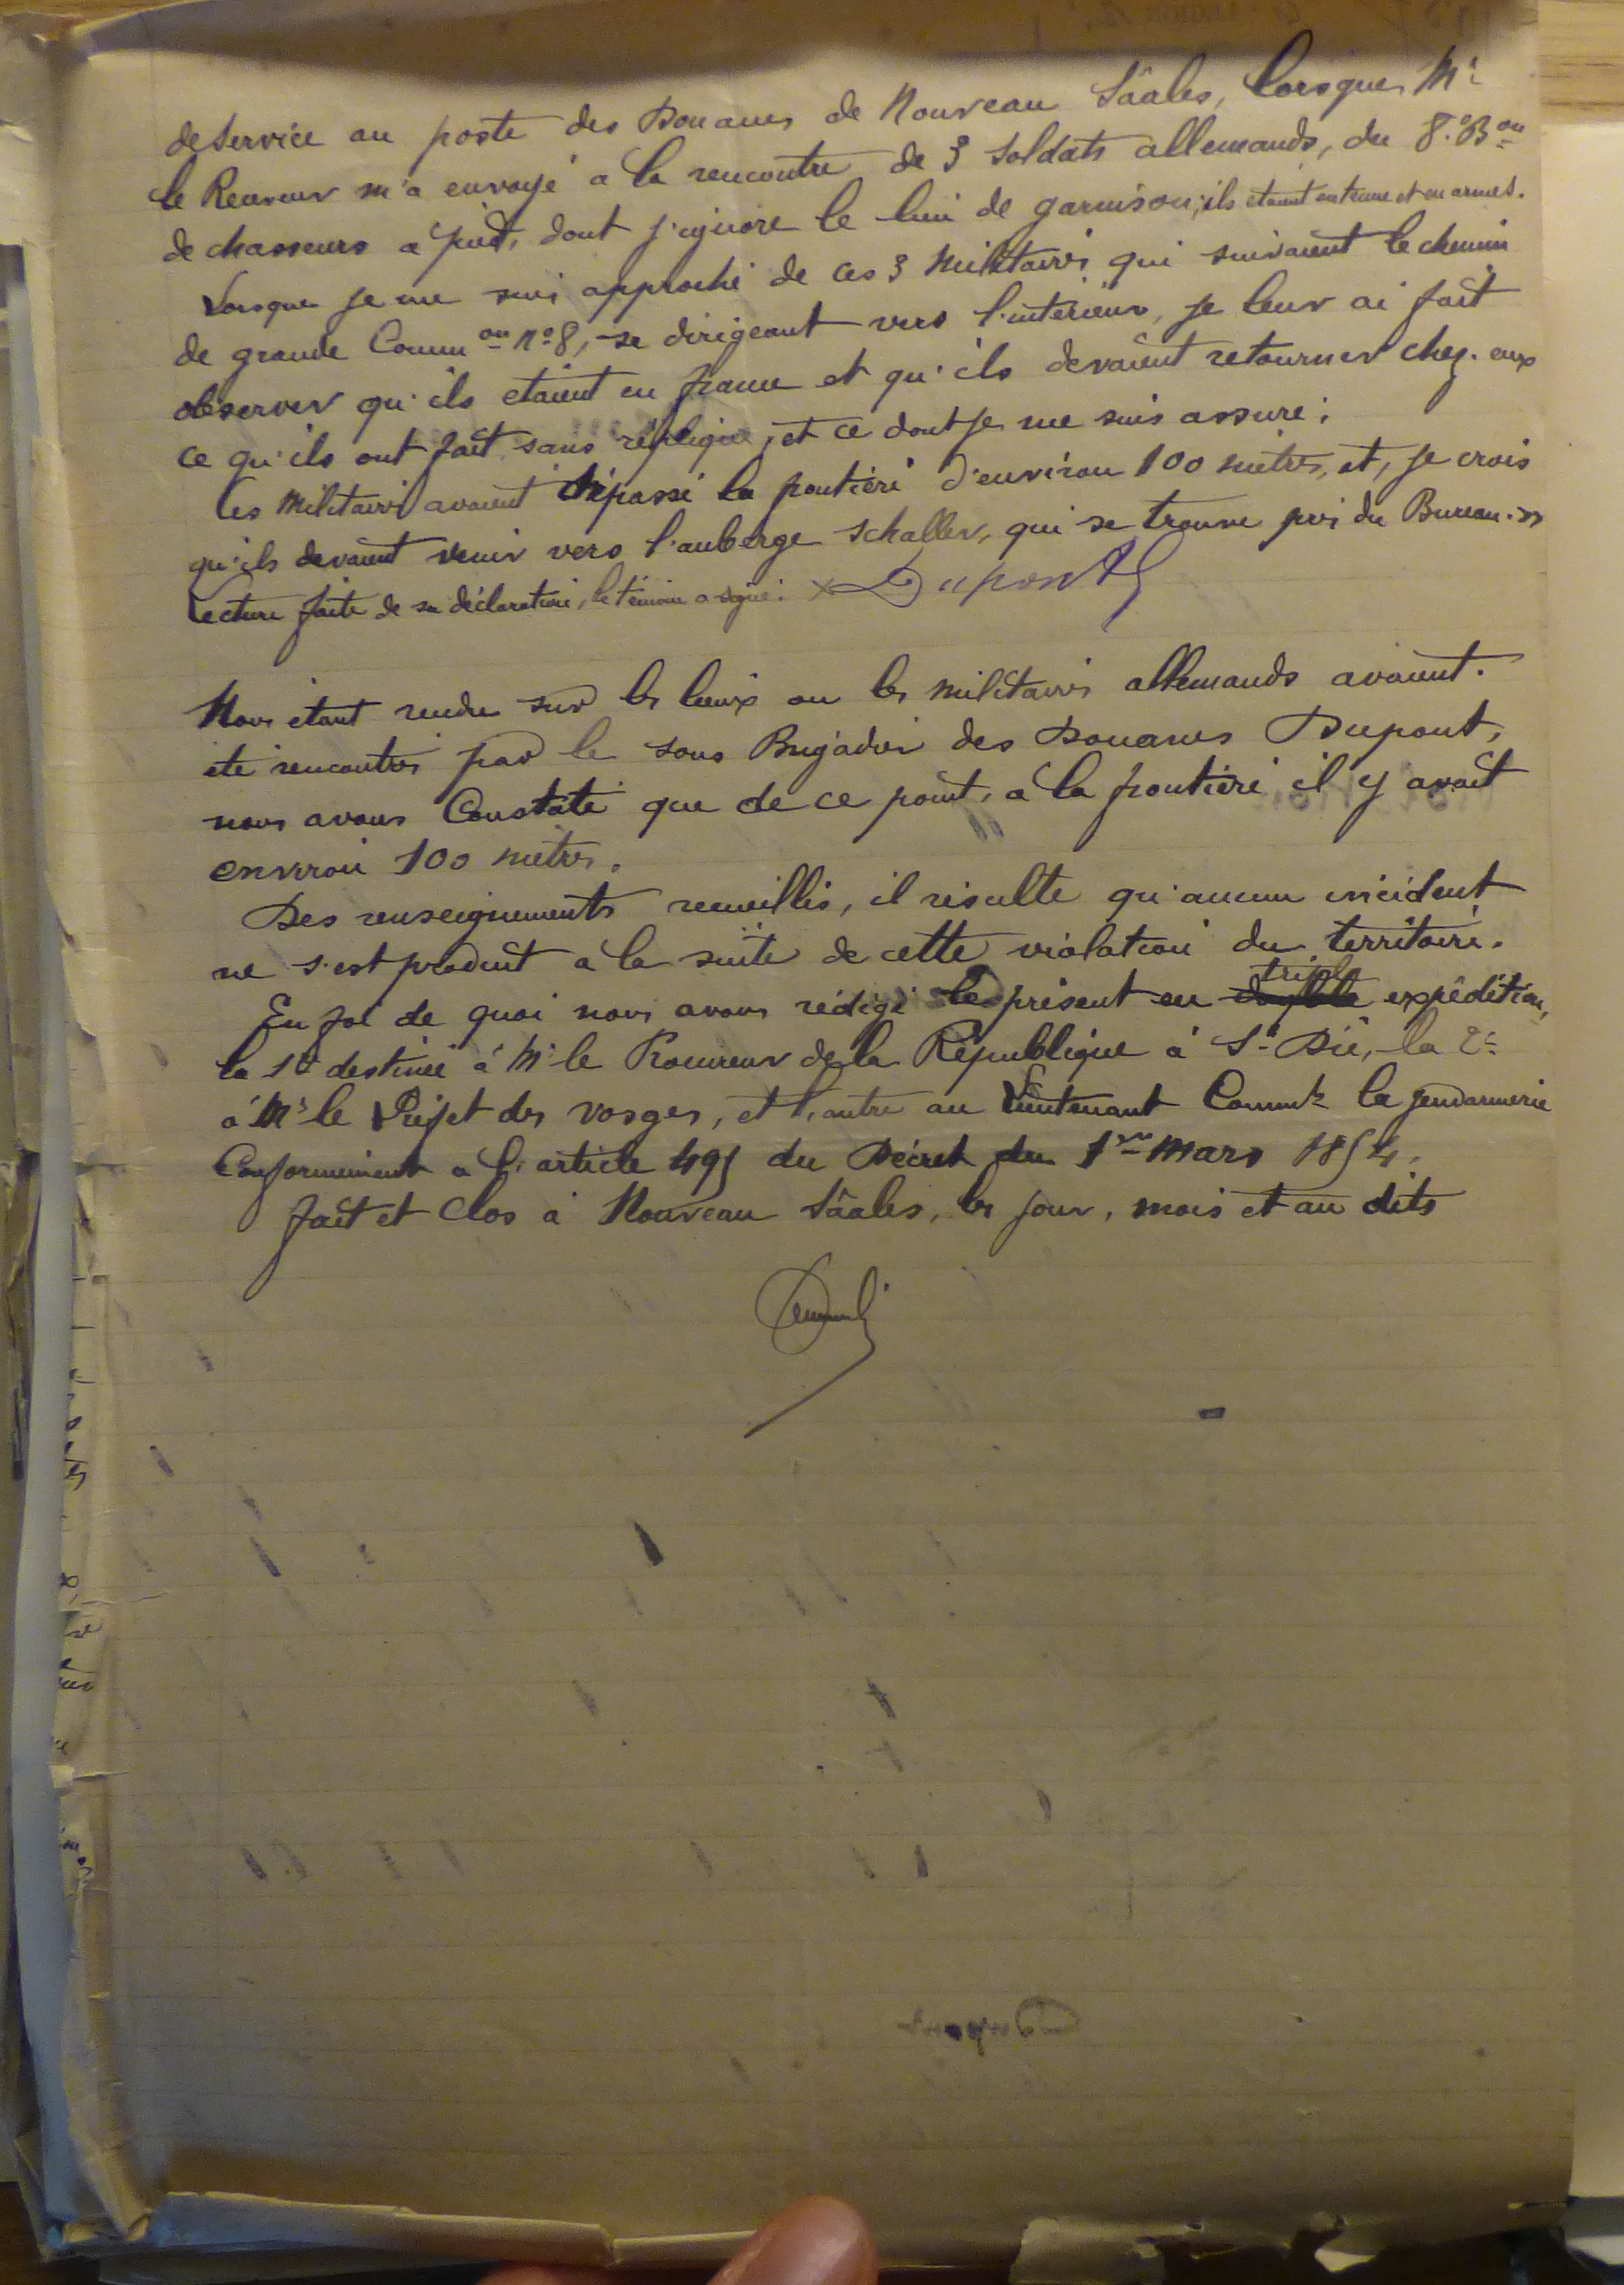 de service au poste des Douanes de Nouveau Sâales, lorsque Mr
le Receveur m'a envoyé à la rencontre de 3 soldats allemands, du 8e Bon
de chasseurs à pied, dont j'ignore le lieu de garnison; ils étaient en tenue et en armes.
Lorsque je me suis approché de ces 3 Militaires qui suivaient le chemin
de grande Common no 8, se dirigeant vers l'intérieur, je leur ai fait
observer qu'ils étaient en france et qu'ils devaient retourner chez eux
ce qu'ils ont fait sans réplique, et ce dont je me suis assuré.
Ces Militaires avaient dépassé la frontière d'environ 100 mètres, et, je crois
qu'ils devaient venir vers l'auberge Schaller, qui se trouve près du Bureau. »
Lecture faite de sa déclaration, le témoin a signé. x Dupont
Nous étant rendu sur les lieux où les militaires allemands avaient
été rencontrés par le sous Brigadier des Douanes Dupont,
nous avons Constaté que de ce point, à la frontière il y avait
environ 100 mètres.
Des renseignements recueillis, il résulte qu'aucun incident
ne s'est produit à la suite de cette violation du territoire.
triple
En foi de quoi nous avons rédigé le présent en double expédition,
la 1re destinée à Mr le Procureur de la République à St Dié, la 2e
à Mr le Préfet des Vosges, et l'autre au Lieutenant Commt la gendarmerie
Conformément à l'article 495 du Décret du 1er Mars 1854.
fait et Clos à Nouveau Sâales, les jour, mois et an dits